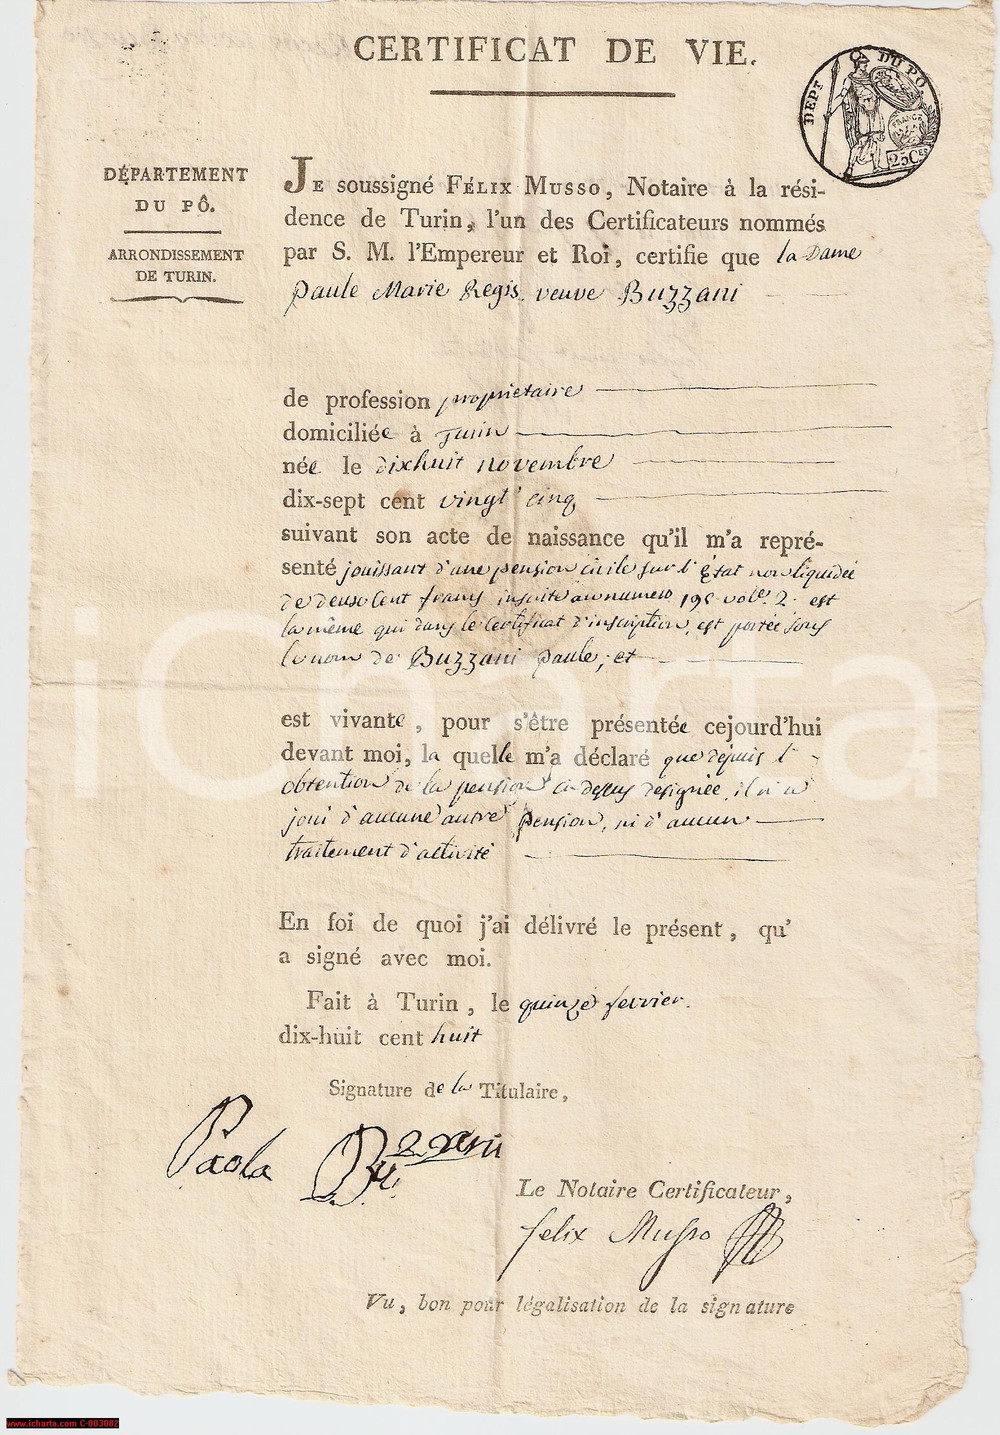 CERTIFICAT DE VIE.
DEPT DU PÔ
FRANCE
25Ces
DÉPARTEMENT
DU PÔ.
ARRONDISSEMENT
DE TURIN.
JE soussigné FÉLIX MUSSO, Notaire à la rési-
dence de Turin, l'un des Certificateurs nommés
par S. M. l'Empereur et Roi, certifie que la Dame
Paule Marie Regis veuve Buzzani
de profession proprietaire
domiciliée à Turin
née le dixhuit novembre
dix-sept cent vingt cinq
suivant son acte de naissance qu'il m'a repré-
senté jouissant d'une pension civile sur l'État non liquidée
de deux Cent francs inscrite au numero 195 vole. 2. est
la même qui dans le Certificat d'inscription, est portée sous
le nom de Buzzani Paule, et
est vivante, pour s'être présentée cejourd'hui
devant moi, la quelle m'a déclaré que depuis l'
obtention de la pension ci dessus designée, il n'a
joui d'aucune autre pension, ni d'aucun
traitement d'activité
En foi de quoi j'ai délivré le présent, qu'
a signé avec moi.
Fait à Turin, le quinze fevrier.
dix-huit cent huit
Signature de la Titulaire,
Paola Buzzani
Le Notaire Certificateur,
felix Musso
Vu, bon pour légalisation de la signature
iCharta
www.icharta.com C-003082